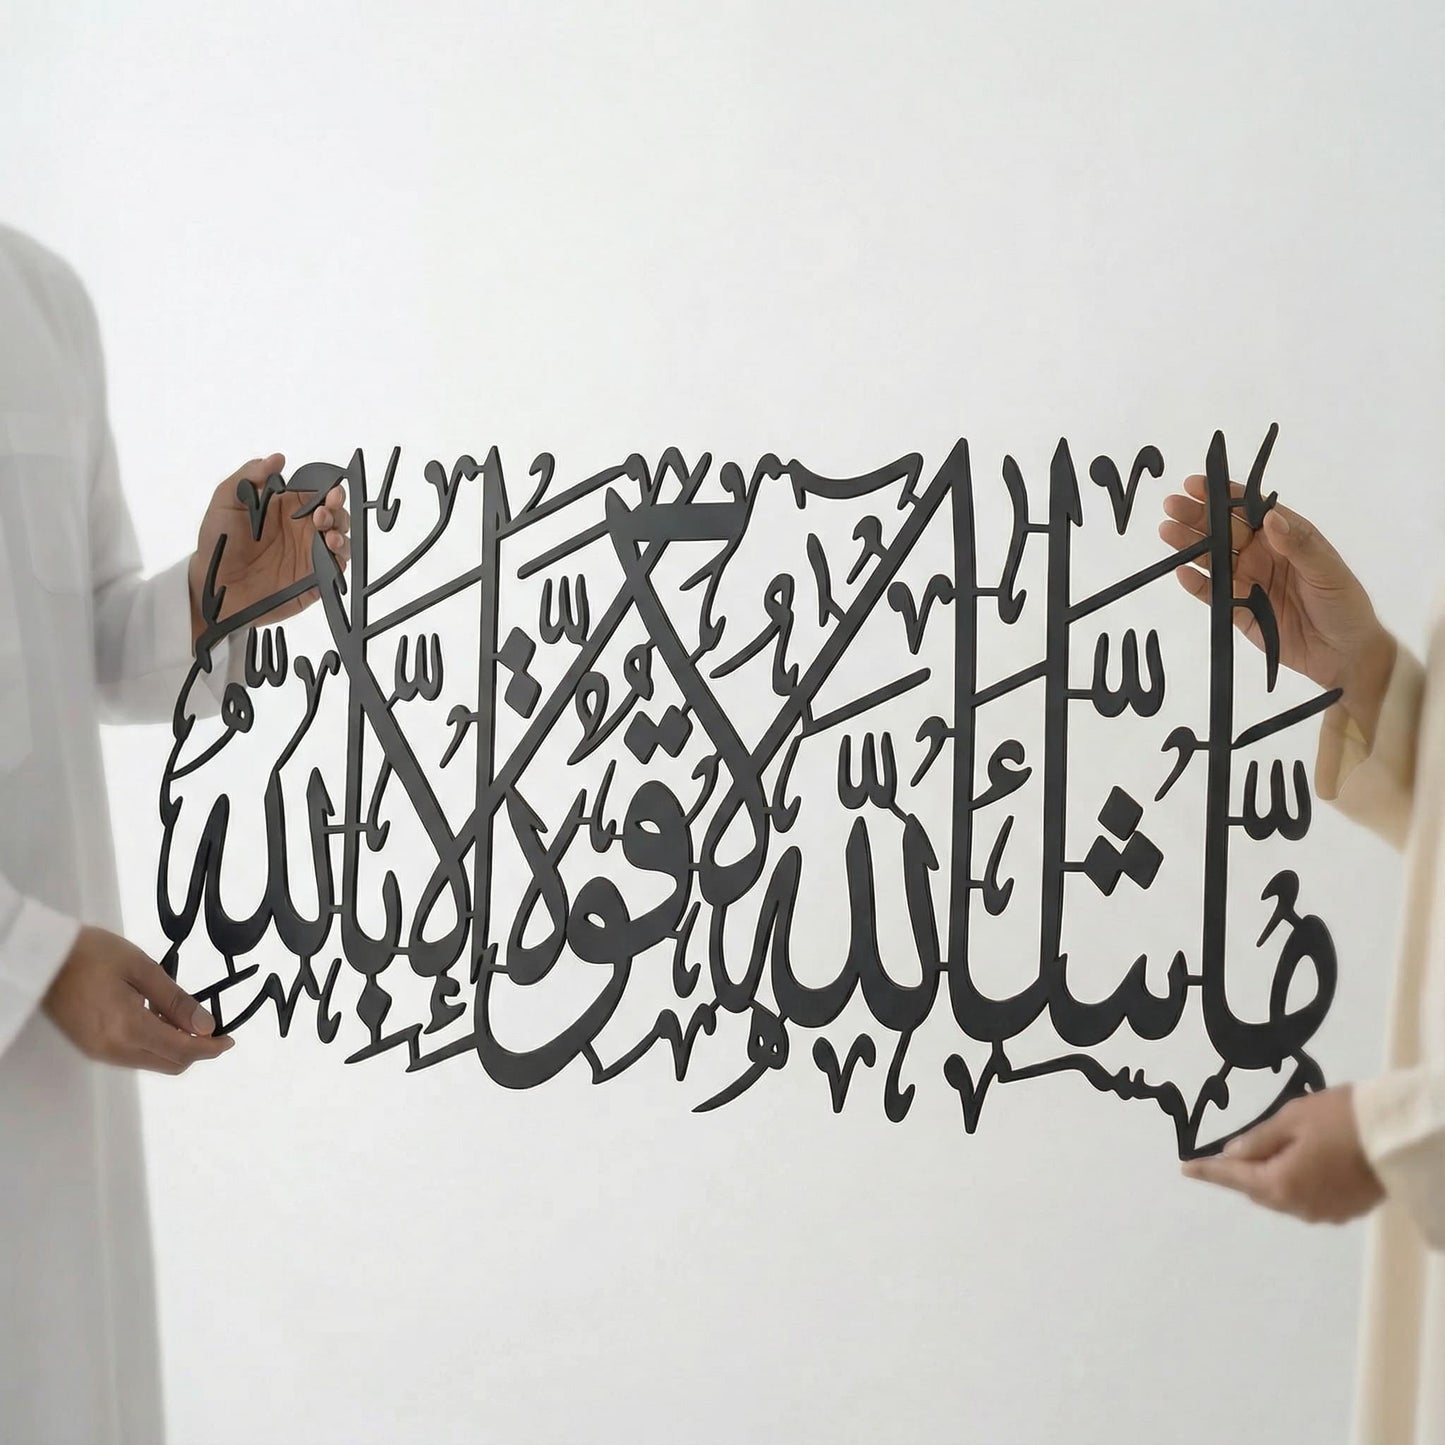 ما شاء الله لا قوة إلا بالله